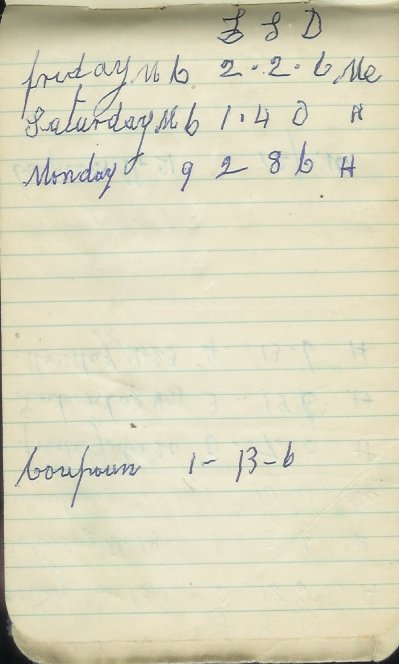 £ S D
friday M 6 2 . 2 . 6 Me
Saturday M 6 1 . 4 0 H
Monday 9 2 8 6 H
Coupoun 1 - 13 - 6